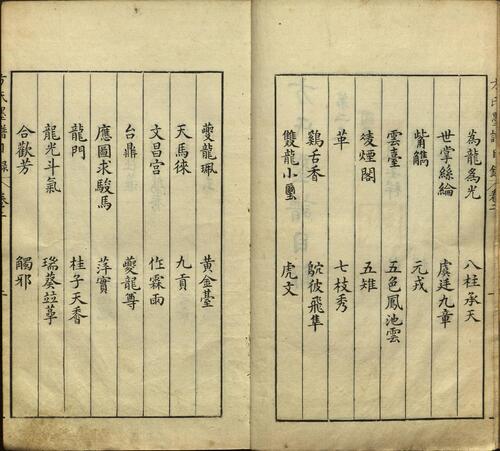 為龍為光 八柱承天
世掌絲綸 虞廷九章
觜觿 元戎
雲臺 五色鳳池雲
凌煙閣 五雉
革 七枝秀
鷄舌香 鴥彼飛隼
雙龍小璽 虎文
夔龍珮 黃金臺
天馬徠 九貢
文昌宮 作霖雨
台鼎 夔龍尊
應圖求駿馬 萍實
龍門 桂子天香
龍光斗氣 瑞葵竝萼
合歡芳 觸邪
方氏墨譜目錄 卷二